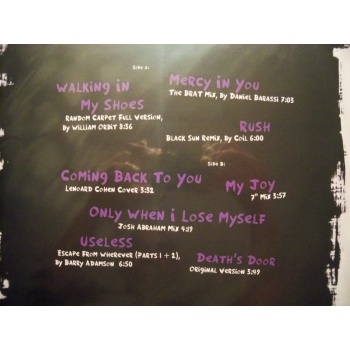 Side A:
Walking in
My Shoes
Random Carpet Full Version,
by William Orbit 8:36
Mercy in You
The BRAT Mix, by Daniel Barassi 7:03
Rush
Black Sun Remix, by Coil 6:00
Side B:
Coming Back To You
Lenoard Cohen Cover 3:32
My Joy
7" Mix 3:57
Only When i Lose Myself
Josh Abraham Mix 4:19
Useless
Escape From Wherever (Parts 1 + 2),
by Barry Adamson 6:50
Death's Door
Original Version 3:49